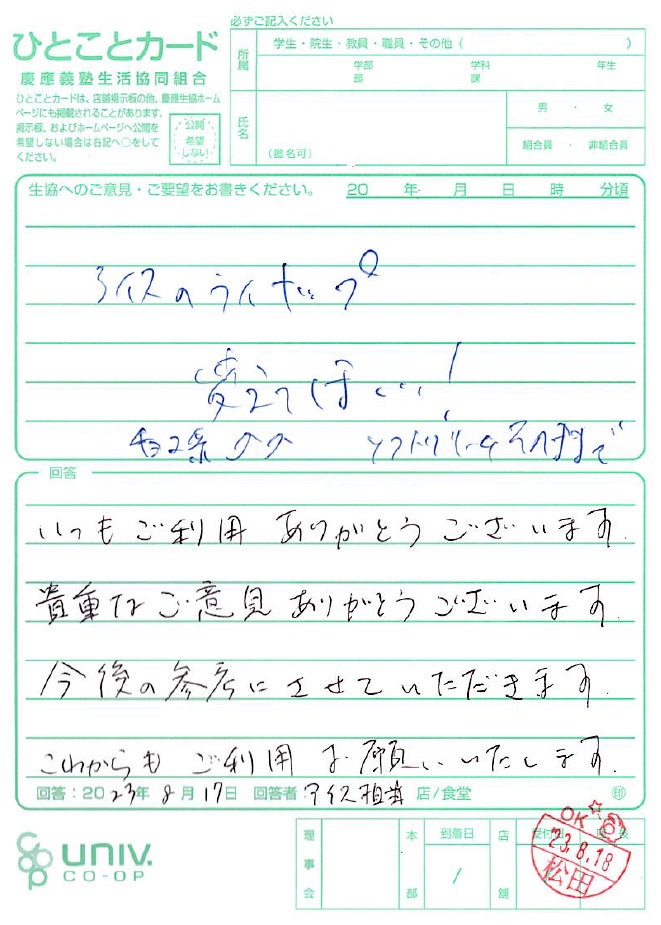 必ずご記入ください
ひとことカード
慶應義塾生活協同組合
ひとことカードは、店舗掲示板の他、慶應生協ホーム
ページにも掲載されることがあります。
掲示板、およびホームページへ公開を
希望しない場合は右記へ○をして
ください。
公開
希望
しない
所属
学生・院生・教員・職員・その他( )
学部 学科 年生
部 課
氏名
(匿名可)
男 ・ 女
組合員 ・ 非組合員
生協へのご意見・ご要望をお書きください。 20 年 月 日 時 分頃
アイスのラインナップ
変えてほしい!
チョコ系 ソフトクリーム
回答
いつもご利用ありがとうございます.
貴重なご意見ありがとうございます.
今後の参考にさせていただきます.
これからもご利用お願いいたします.
回答:2023年8月17日 回答者:アイス担当 店/食堂 印
univ.
CO-OP
理事会
本部
到着日
/
店舗
受付日
店長
OK
'23.8.18
松田